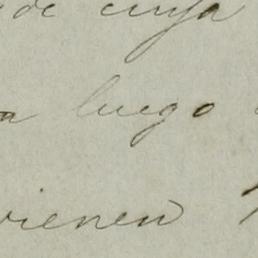 de cuya
a luego
vienen